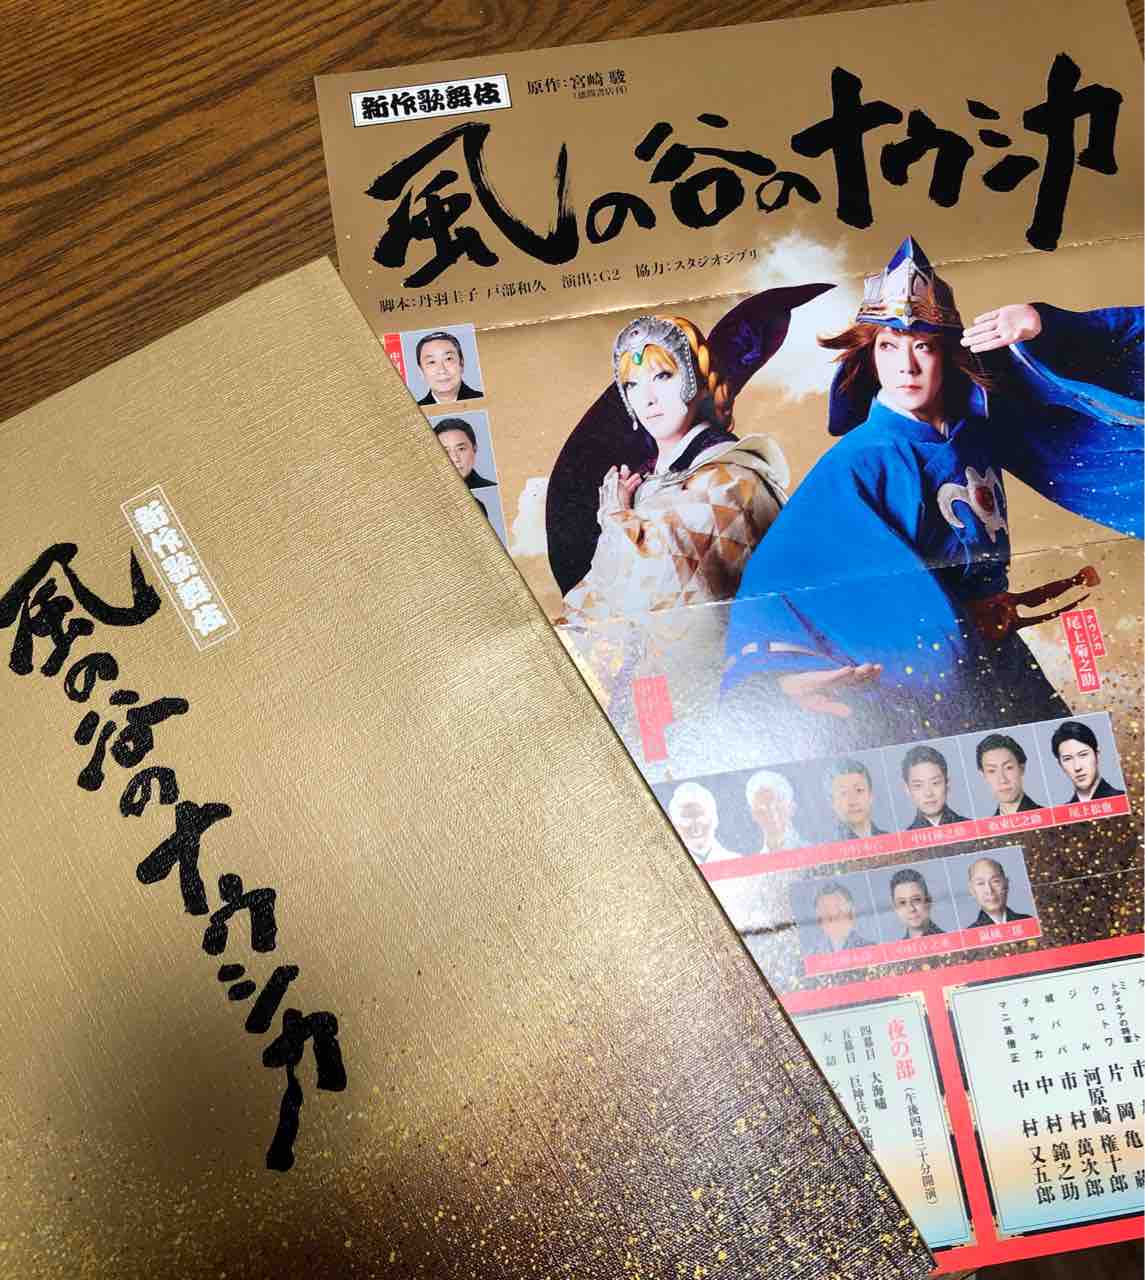 新作歌舞伎
原作：宮崎 駿
（徳間書店刊）
風の谷のナウシカ
脚本：丹羽圭子 戸部和久 演出：G2 協力：スタジオジブリ
新作歌舞伎
風の谷のナウシカ
ナウシカ
尾上菊之助
中村種之助
坂東巳之助
尾上松也
中村吉之丞
嵐橘三郎
夜の部（午後四時三十分開演）
四幕目 大海嘯
五幕目 巨神兵の覚醒
大詰
トルメキアの将軍
片岡亀蔵
河原崎権十郎
ジバル
市村萬次郎
城
中村錦之助
チャルカ
マニ族僧正
中村又五郎